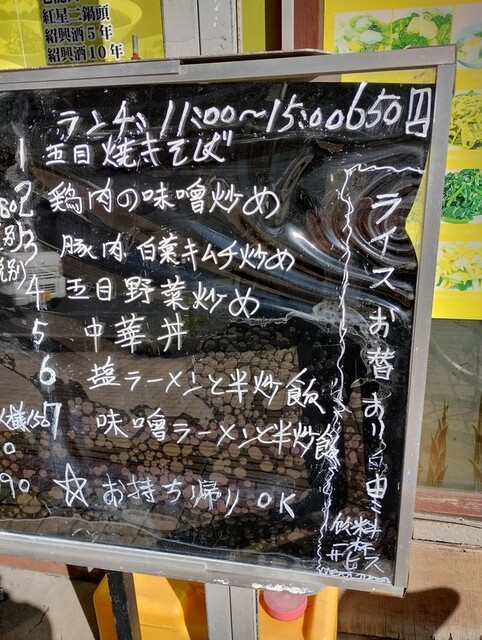 紅星二鍋頭
紹興酒5年
紹興酒10年
ランチ 11:00～15:00 650円
1 五目焼きそば
2 鶏肉の味噌炒め
3 豚肉白菜キムチ炒め
4 五目野菜炒め
5 中華丼
6 塩ラーメンと半炒飯
7 味噌ラーメンと半炒飯
☆お持ち帰りOK
ライスお替おり自由
飲料一杯
サービス